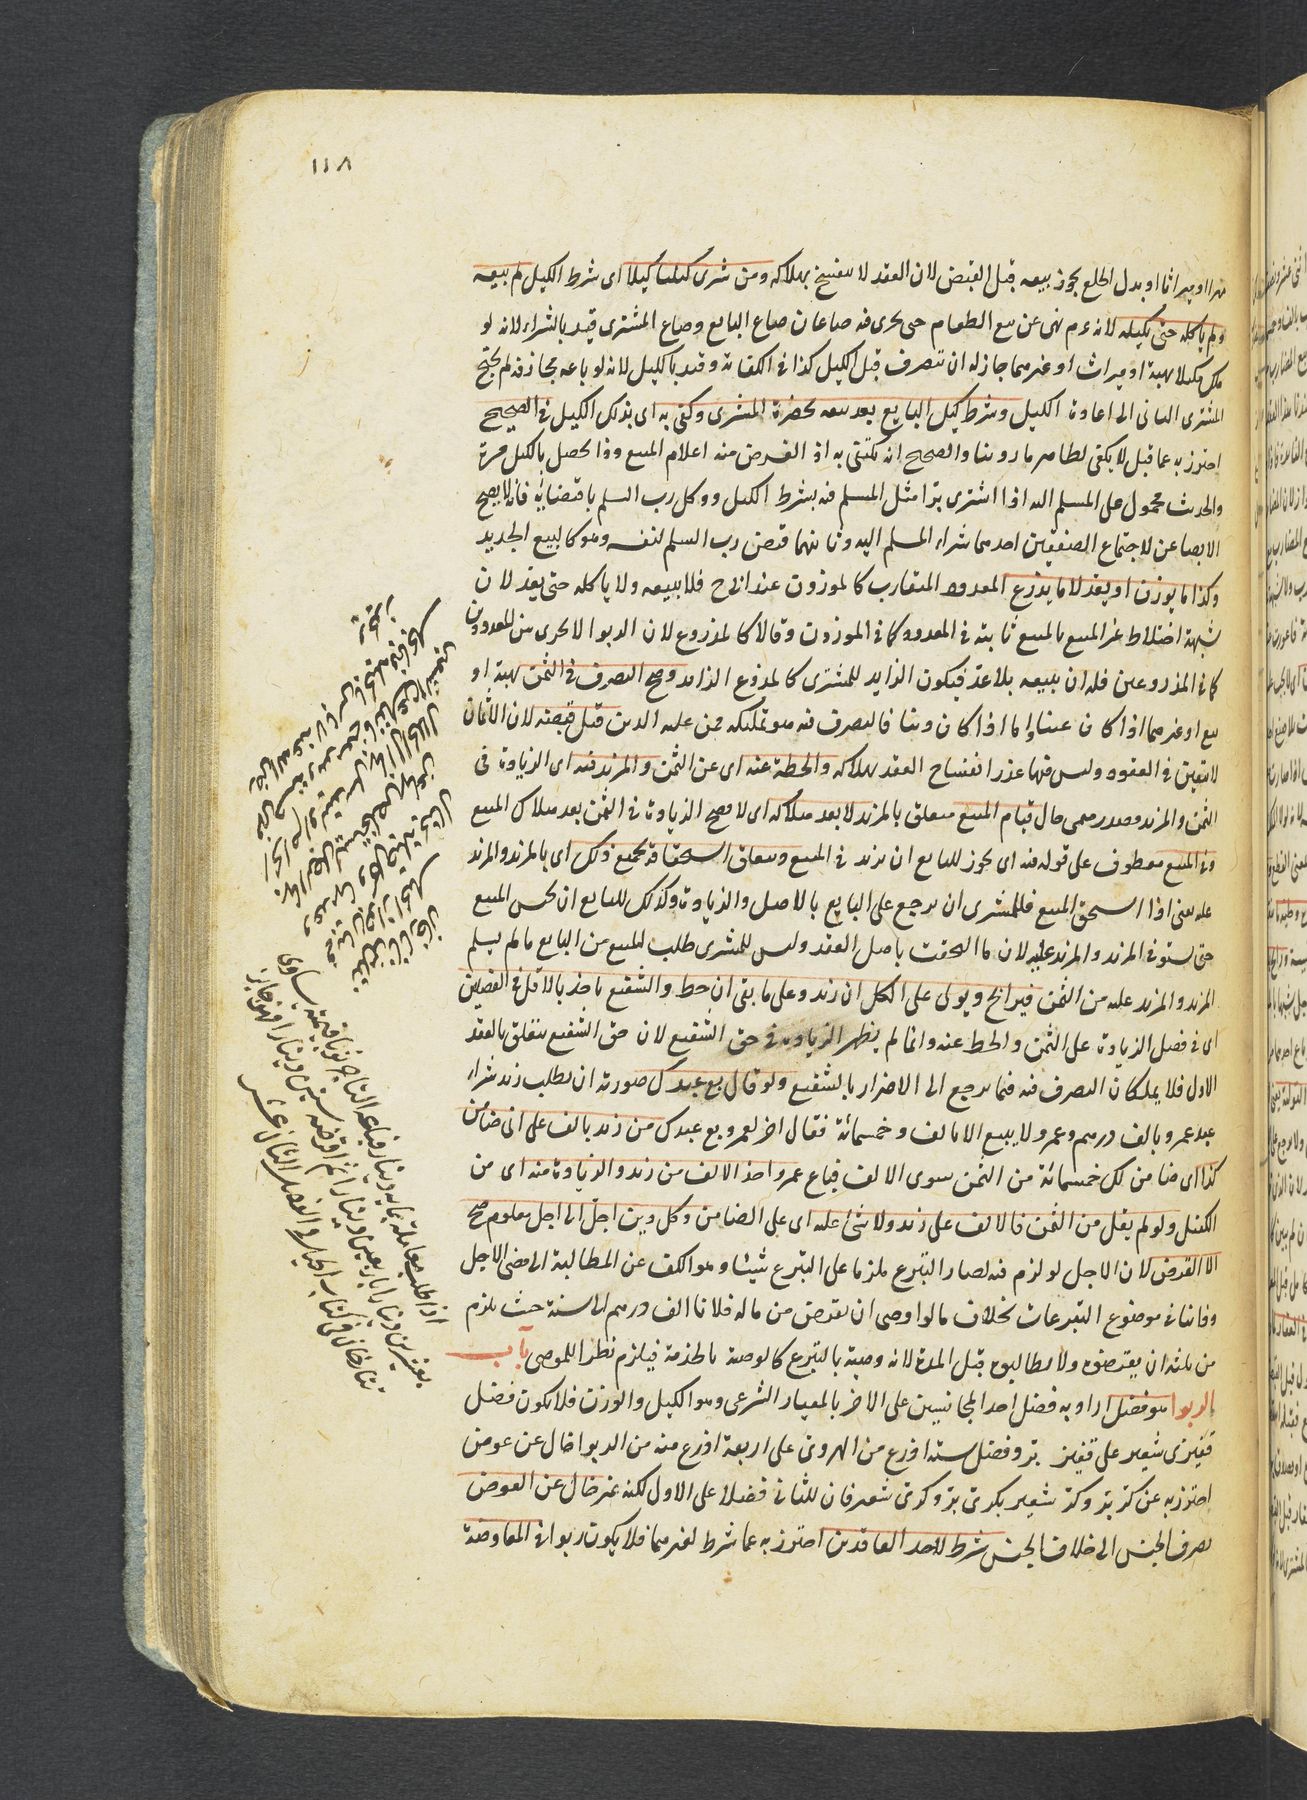 ١١٨
مهرا او ميراثا او بدل الخلع يجوز بيعه قبل القبض لان العقد لا ينفسخ بهلاكه ومن شرى كيليا كيلا اى شرط الكيل لم يبعه
ولم ياكله حتى يكيله لانه ءم نهى عن بيع الطعام حتى يجرى فيه صاعان صاع البايع وصاع المشترى قيد بالشراء لانه لو
ملك مكيلا بهبة او ميراث او غيرهما جاز له ان يتصرف قبل الكيل كذا فى الكفاية وقيد بالكيل لانه لو باعه مجازفة لم يحتج
المشترى الثانى الى اعادة الكيل وشرط كيل البايع بعد بيعه بحضرة المشترى وكفى به اى بذلك الكيل فى الصحيح
احترز به عما قيل لا يكفى لظاهر ما روينا والصحيح انه يكتفى به اذ الغرض منه اعلام المبيع وذا يحصل بالكيل مرة
والحديث محمول على المسلم اليه اذا اشترى برا مثل المسلم فيه بشرط الكيل ووكل رب السلم باقتضائه فانه لا يصح
الا بصاعين لاجتماع الصفقتين احدهما شراء المسلم اليه وثانيهما قبض رب السلم لنفسه وهو كالبيع الجديد
وكذا ما يوزن او يعد لا ما يذرع المعدود المتقارب كالموزون عند ابى ح فلا يبيعه ولا ياكله حتى يعد لان
شبهة اختلاط غير المبيع بالمبيع ثابتة فى المعدود كما فى الموزون وقالا كالمذروع لان الربوا لا يجرى بين المعدودين
كما فى المذروعين فله ان يبيعه بلا عد فيكون الزايد للمشترى كالمذروع الزايد وصح التصرف فى الثمن بهبة او
بيع او غيرهما اذا كان عينا اما اذا كان دينا فالتصرف فيه هو تمليكه ممن عليه الدين قبل قبضه لان الاثمان
لا تتعين فى العقود وليس فيها غرر انفساخ العقد بهلاكه والحط عنه اى عن الثمن والمزيد فيه اى الزيادة فى
الثمن والمزيد مصدر ميمى حال قيام المبيع متعلق بالمزيد لا بعد هلاكه اى لا يصح الزيادة فى الثمن بعد هلاك المبيع
وفى المبيع معطوف على قوله فيه اى يجوز للبايع ان يزيد فى المبيع ويتعلق استحقاقه بجميع ذلك اى بالمزيد والمزيد
عليه يعنى اذا استحق المبيع فللمشترى ان يرجع على البايع بالاصل والزيادة وكذلك للبايع ان يحبس المبيع
حتى يستوفى المزيد والمزيد عليه لان ما التحقت باصل العقد وليس للمشترى طلب المبيع من البايع ما لم يسلم
المزيد والمزيد عليه من الثمن فيرابح ويولى على الكل ان زيد وعلى ما بقى ان حط والشفيع ياخذ بالاقل فى الفصلين
اى فى فصل الزيادة على الثمن والحط عنه وانما لم يظهر الزيادة فى حق الشفيع لان حق الشفيع يتعلق بالعقد
الاول فلا يملكان التصرف فيه فيما يرجع الى الاضرار بالشفيع ولو قال بع عبدك صورته ان يطلب زيد شراء
عبد عمرو بالف درهم وعمرو لا يبيع الا بالف وخمسمائة فقال اخر لعمرو بع عبدك من زيد بالف على انى ضامن
كذا اى ضامن لك خمسمائة من الثمن سوى الالف فباع عمرو اخذ الالف من زيد والزيادة منه اى من
الكفيل ولو لم يقل من الثمن فالالف على زيد ولا شئ عليه اى على الضامن وكل دين اجل الى اجل معلوم صح
الا القرض لان الاجل لو لزم فيه لصار التبرع ملزما على المتبرع شيئا وهو الكف عن المطالبة الى مضى الاجل
وفاتنا فى موضوع التبرعات بخلاف ما لو اوصى ان يقرض من ماله فلانا الف درهم الى سنة حيث يلزم
من ثلثه ان يقرضوه ولا يطالبوه قبل المدة لانه وصية بالتبرع كالوصية بالخدمة فيلزم نظرا للموصى باب
الربوا هو فضل اراد به فضل احد المجانسين على الاخر بالمعيار الشرعى وهو الكيل والوزن فلا يكون فضل
قفيزى شعير على قفيز بر وفضل ستة اذرع من الهروى على اربعة اذرع منه من الربوا خال عن عوض
احترز به عن كر بر وكر شعير بكرى بر وكرى شعير فان للثانى فضلا على الاول لكنه غير خال عن العوض
بصرف الجنس الى خلاف الجنس شرط لاحد العاقدين احترز به عما شرط لغيرهما فلا يكون ربوا فى المعاوضة
اذا طلب معاملة بماية دينار فباعه التاجر ثوبا قيمته يساوى
بعشرين دينارا باربعين دينارا ثم اقرضه ستين دينارا فهو جايز
تتارخان فى كتاب الحيل والفصل الثانى عشر